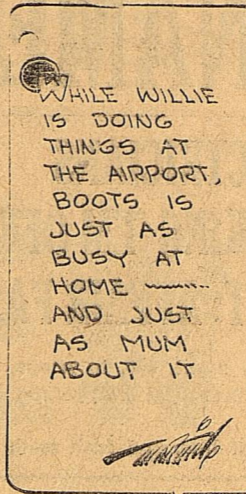 WHILE WILLIE
IS DOING
THINGS AT
THE AIRPORT,
BOOTS IS
JUST AS
BUSY AT
HOME ~~~~
AND JUST
AS MUM
ABOUT IT